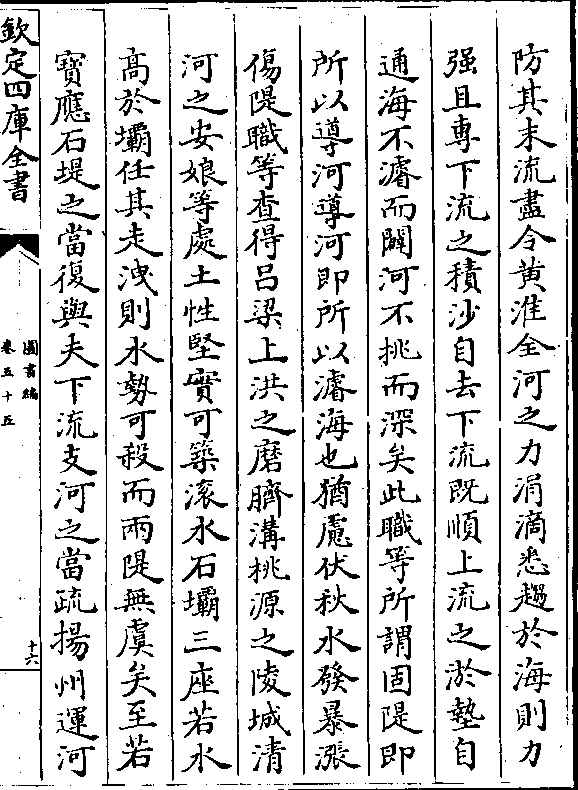 防其末流盡令黄淮全河之力涓滴悉趨於海則力
强且專下流之積沙自去下流既順上流之淤墊自
通海不濬而闢河不挑而深矣此職等所謂固隄即
所以導河導河即所以濬海也猶慮伏秋水發暴漲
傷隄職等查得吕梁上洪之磨臍溝桃源之陵城清
河之安娘等處土性堅實可築滚水石壩三座若水
高於壩任其走洩則水勢可殺而兩隄無虞矣至若
寶應石堤之當復與夫下流支河之當疏揚州運河
欽定四庫全書
圖書編
卷五十五
十六